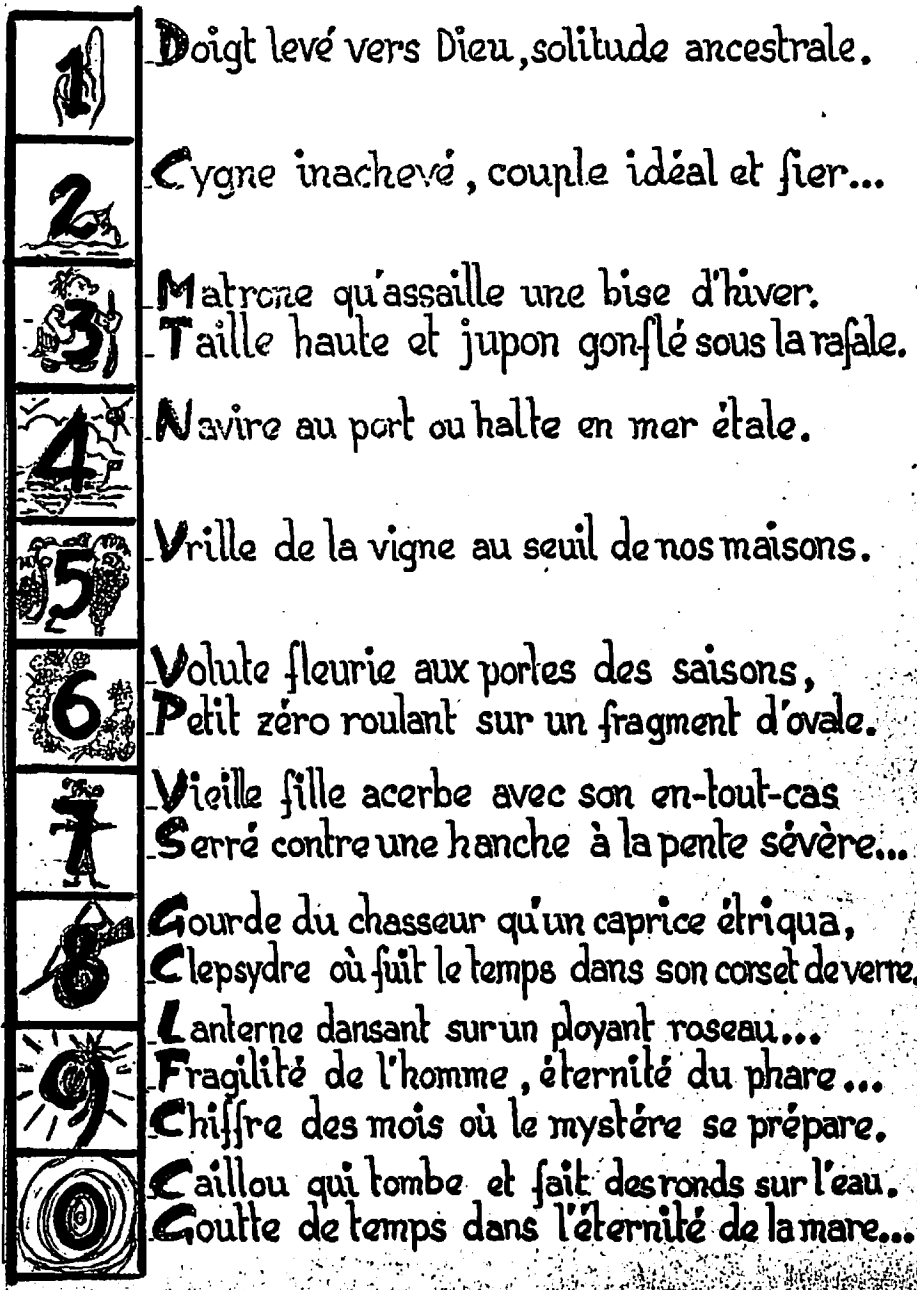 1
Doigt levé vers Dieu, solitude ancestrale.
2
Cygne inachevé, couple idéal et fier...
3
Matrone qu'assaille une bise d'hiver.
Taille haute et jupon gonflé sous la rafale.
4
Navire au port ou halte en mer étale.
5
Vrille de la vigne au seuil de nos maisons.
6
Volute fleurie aux portes des saisons,
Petit zéro roulant sur un fragment d'ovale.
7
Vieille fille acerbe avec son en-tout-cas
Serré contre une hanche à la pente sévère...
8
Gourde du chasseur qu'un caprice étriqua,
Clepsydre où fuit le temps dans son corset de verre.
9
Lanterne dansant sur un ployant roseau...
Fragilité de l'homme, éternité du phare...
Chiffre des mois où le mystére se prépare.
0
Caillou qui tombe et fait des ronds sur l'eau.
Goutte de temps dans l'éternité de la mare...